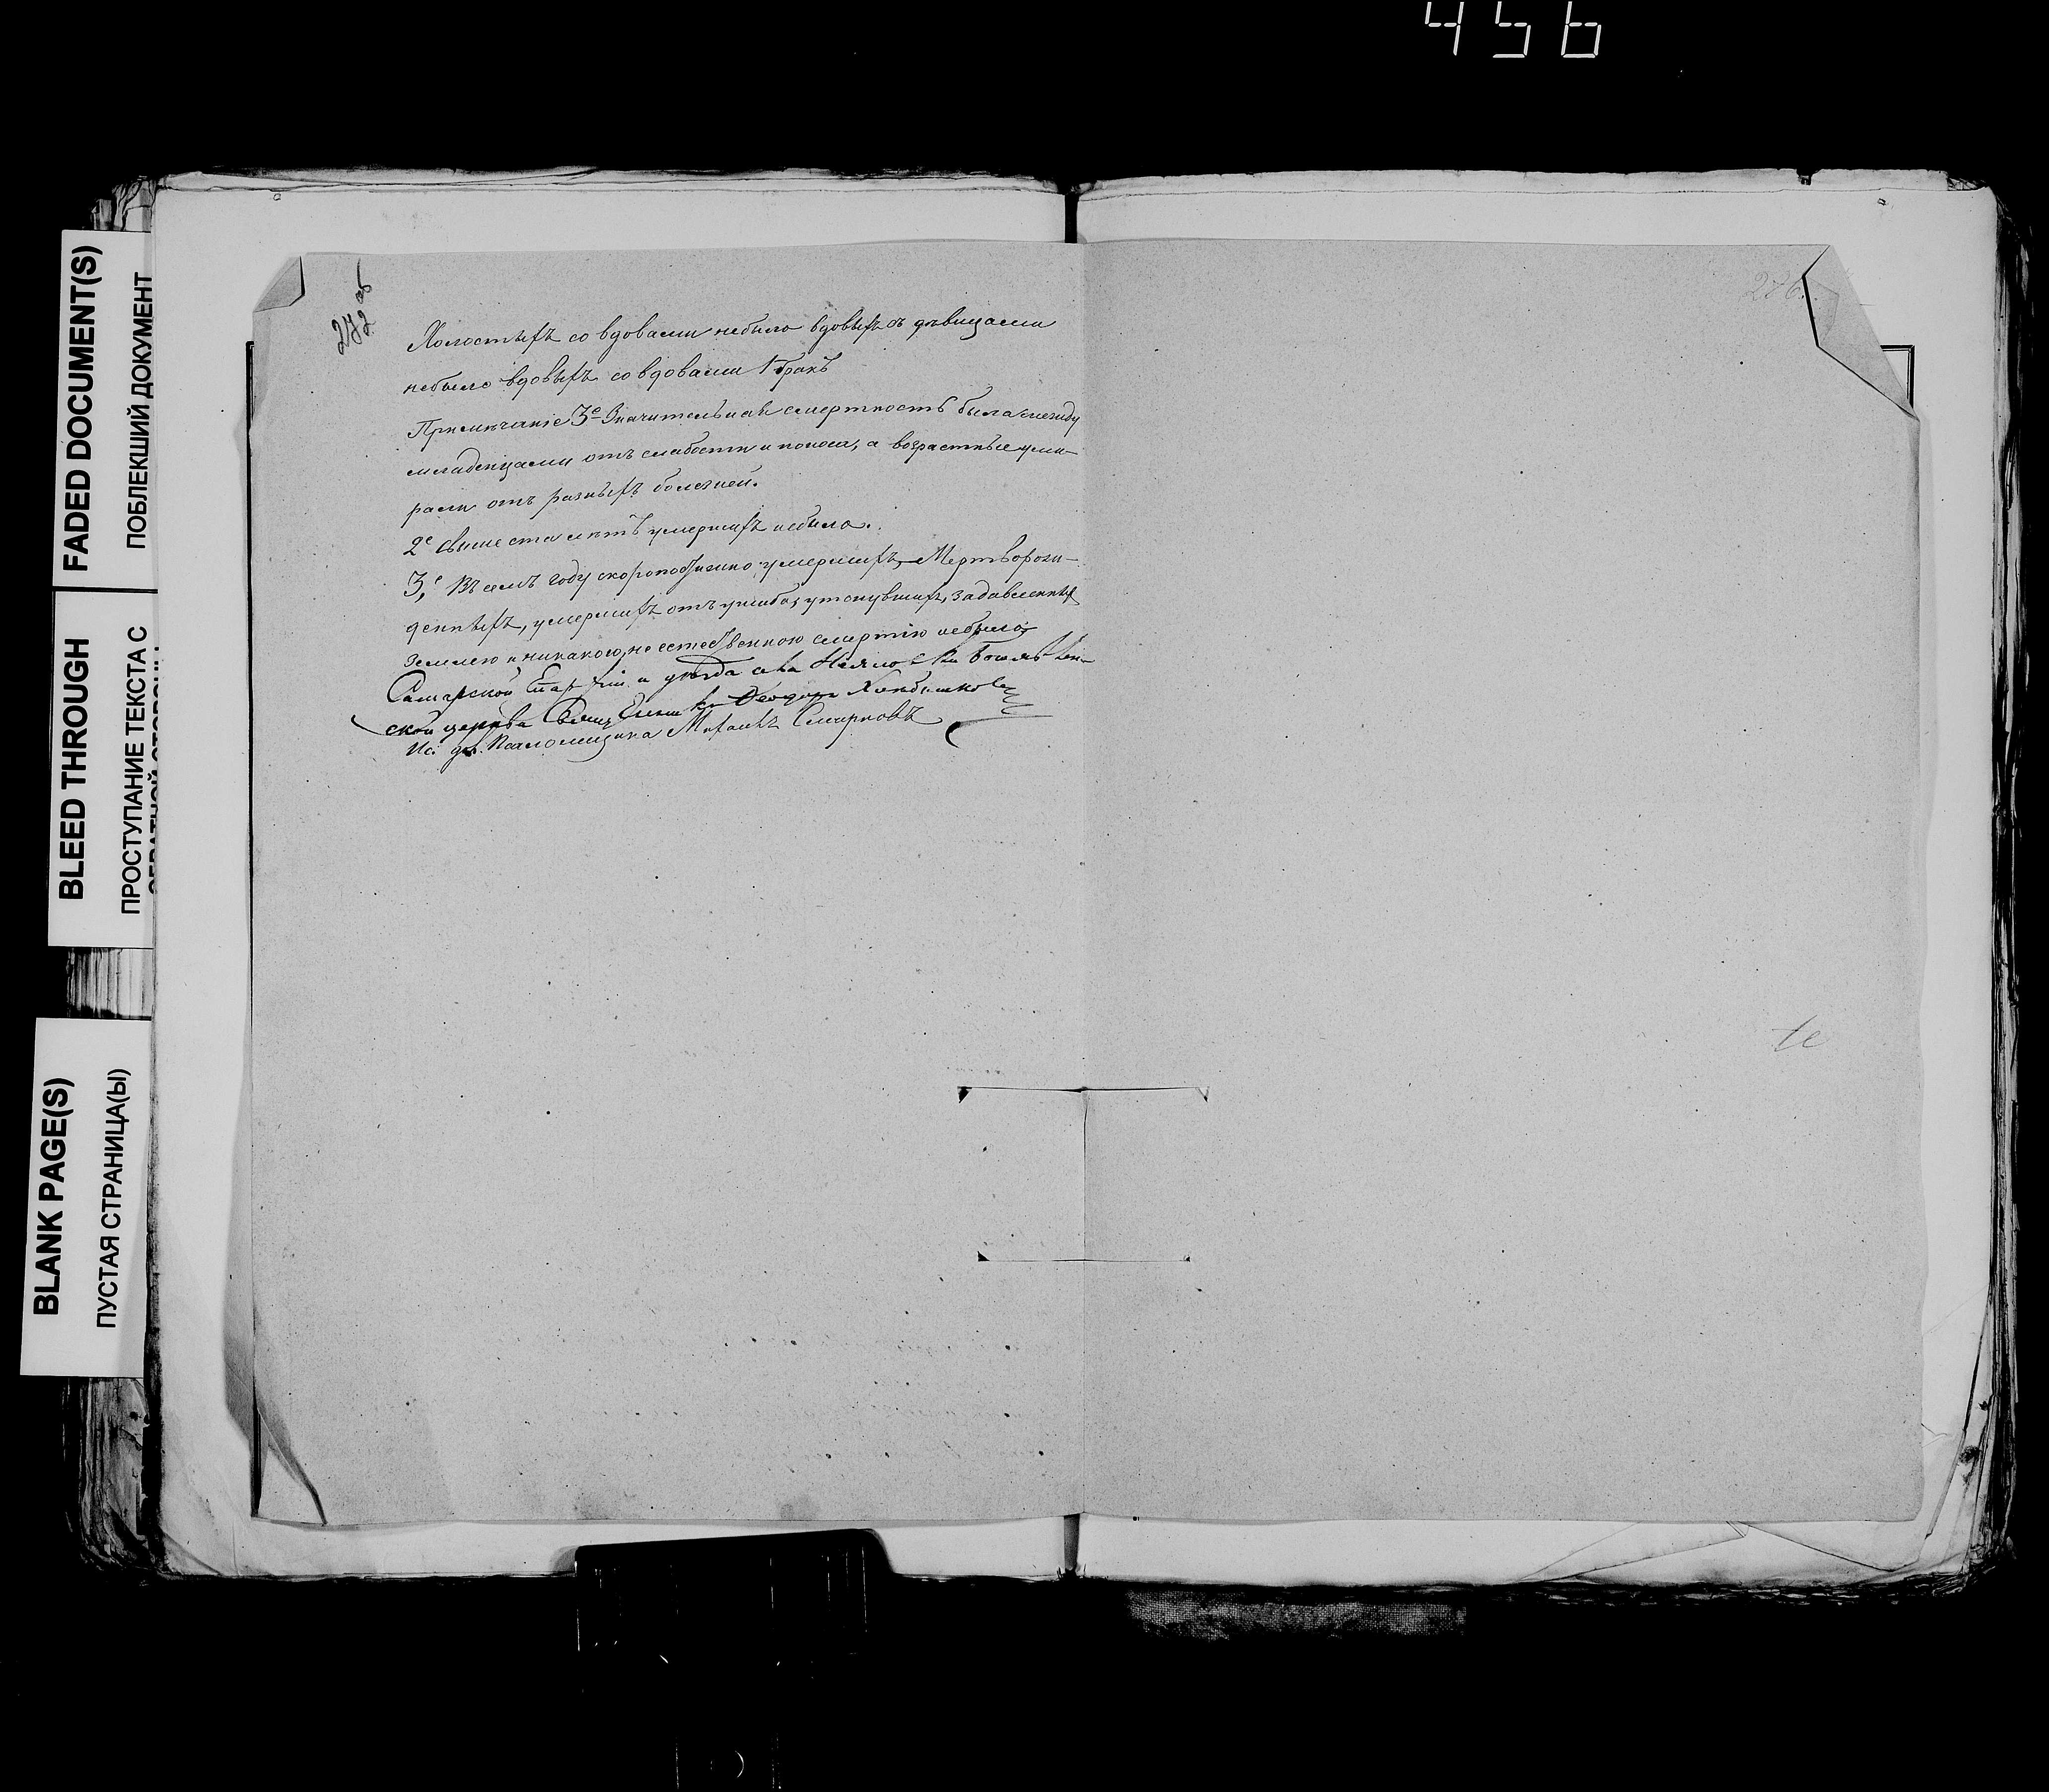 456
FADED DOCUMENT(S)
ПОБЛЕКШИЙ ДОКУМЕНТ
BLEED THROUGH
ПРОСТУПАНИЕ ТЕКСТА С
ОБРАТНОЙ СТОРОНЫ
BLANK PAGE(S)
ПУСТАЯ СТРАНИЦА(Ы)
272 об
Холостыхъ со вдовами небыло вдовыхъ съ дѣвицами
небыло вдовыхъ со вдовами 1 бракъ
Примѣчаніе 3е Значительная смертность была между
младенцами отъ слабости и поноса, а возрастные уми-
рали отъ разныхъ болезней.
2е свыше ста лѣтъ умершихъ небыло.
3,е Въ семъ году скоропостижно умершихъ, Мертворож-
денныхъ, умершихъ отъ ушиба, утонувшихъ, задавленных
землею и никакою, не естественною смертію небыло
Самарской Епархіи и уѣзда села
ской церкви Священникъ Феодоръ
Ис. дл. Псаломщика Михаилъ Смирновъ
276.